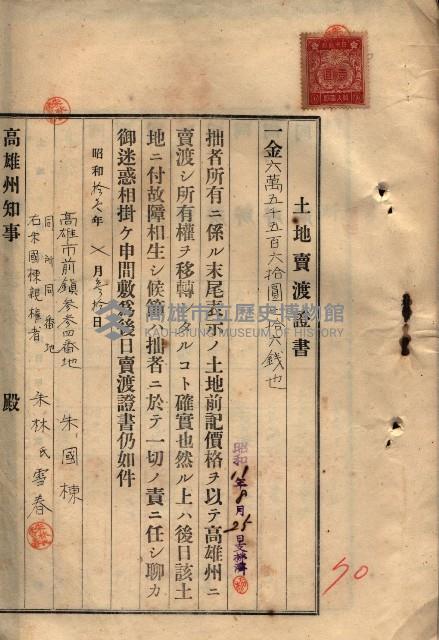 土地賣渡證書
一金六萬五千五百六拾圓
拾六錢也
昭和
年8月25日支拂濟
拙者所有ニ係ル末尾表示ノ土地前記價格ヲ以テ高雄州ニ
賣渡シ所有權ヲ移轉シタルコト確實也然ル上ハ後日該土
地ニ付故障相生シ候節ハ拙者ニ於テ一切ノ責ニ任シ聊カ
御迷惑相掛ケ申間敷爲後日賣渡證書仍如件
昭和拾七年
月參拾日
高雄市前鎮參參四番地
朱國棟
同所同番地
右朱國棟親權者
朱林氏雪春
高雄州知事 殿
70
高雄市立歷史博物館
KAOHSIUNG MUSEUM OF HISTORY